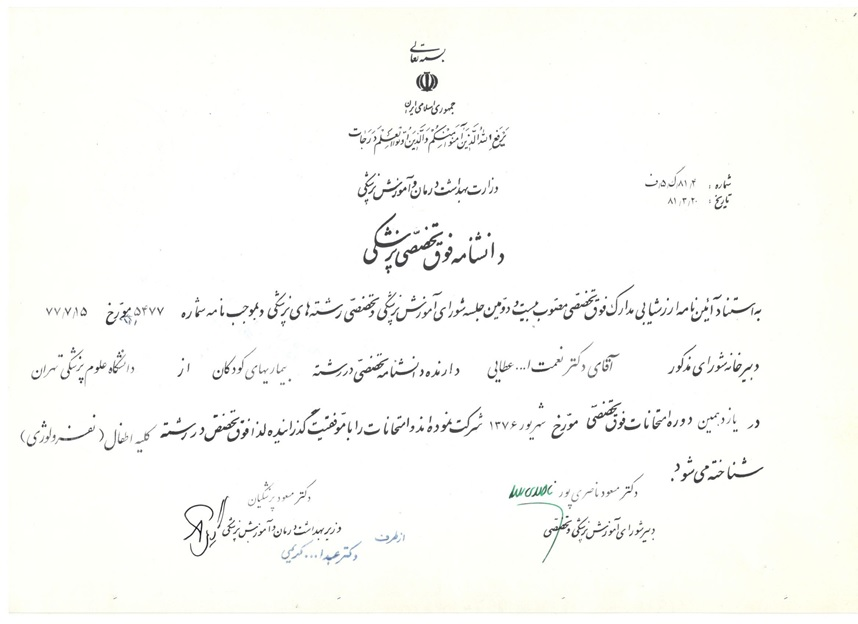 بسمه تعالی
جمهوری اسلامی ایران
یرفع الله الذین آمنوا منکم والذین اوتوا العلم درجات
وزارت بهداشت درمان و آموزش پزشکی
شماره : ۸۱٫۴ ک٫۵٫ف
تاریخ : ۸۱٫۳٫۲۰
دانشنامه فوق تخصصی پزشکی
به استناد آئین نامه ارزشیابی مدارک فوق تخصصی مصوب بیست و دومین جلسه شورای آموزش پزشکی و تخصصی رشته های پزشکی و بموجب نامه شماره ۵٫۴۷۷ مورخ ۷۷٫۷٫۱۵
دبیرخانه شورای مذکور آقای دکتر نعمت ا... عطایی دارنده دانشنامه تخصصی در رشته بیماریهای کودکان از دانشگاه علوم پزشکی تهران
در یازدهمین دوره امتحانات فوق تخصصی مورخ شهریور ۱۳۷۶ شرکت نموده اند و امتحانات را با موفقیت گذرانیده لذا فوق تخصص در رشته کلیه اطفال (نفرولوژی)
شناخته می شود.
دکتر مسعود ناصری پور
دبیر شورای آموزش پزشکی و تخصصی
دکتر مسعود پزشکیان
وزیر بهداشت درمان و آموزش پزشکی
از طرف
دکتر عبدا... کریمی